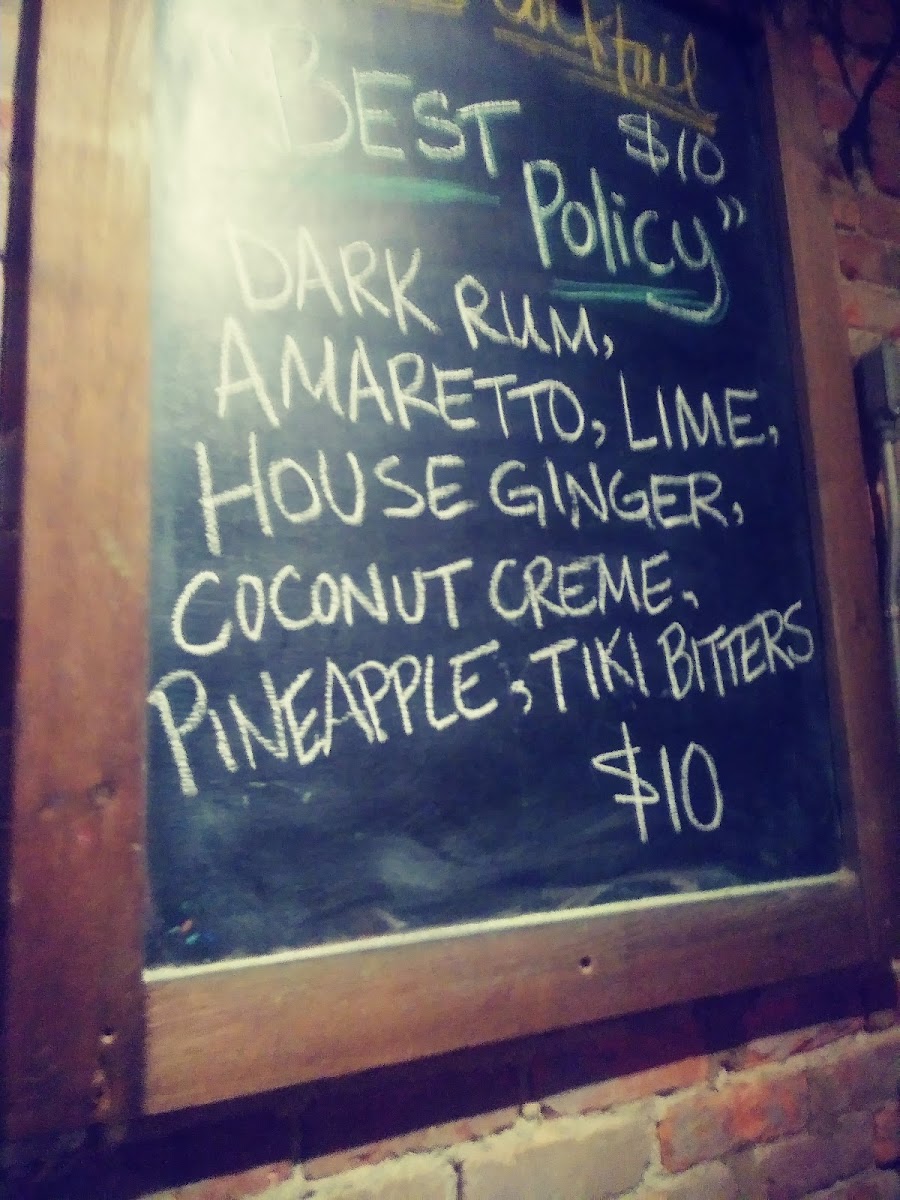 Cocktail
"BEST $10
Policy"
DARK RUM,
AMARETTO, LIME,
HOUSE GINGER,
COCONUT CREME,
PINEAPPLE, TIKI BITTERS
$10